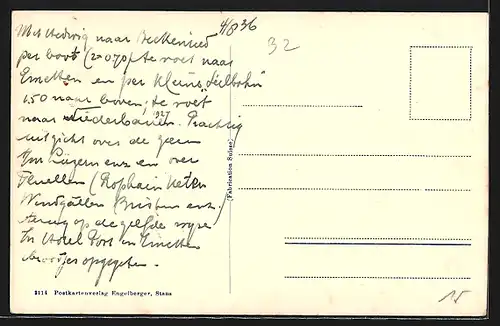 4/8 36
32
Met Hedwig naar Beckenried
per boot (20 0 70) te voet naar
Emetten en per kleine "Seilbahn"
1.50 naar boven; te voet
naar Niederbauen. Prachtig
uitzicht over de
Luzern enz en over
Fluellen (Rophaien
Windgällen Bristen enz.
Terug op de zelfde
In Hotel Post in Emetten
broodjes opgegeten.
(Fabrication Suisse)
2114 Postkartenverlag Engelberger, Stans
15